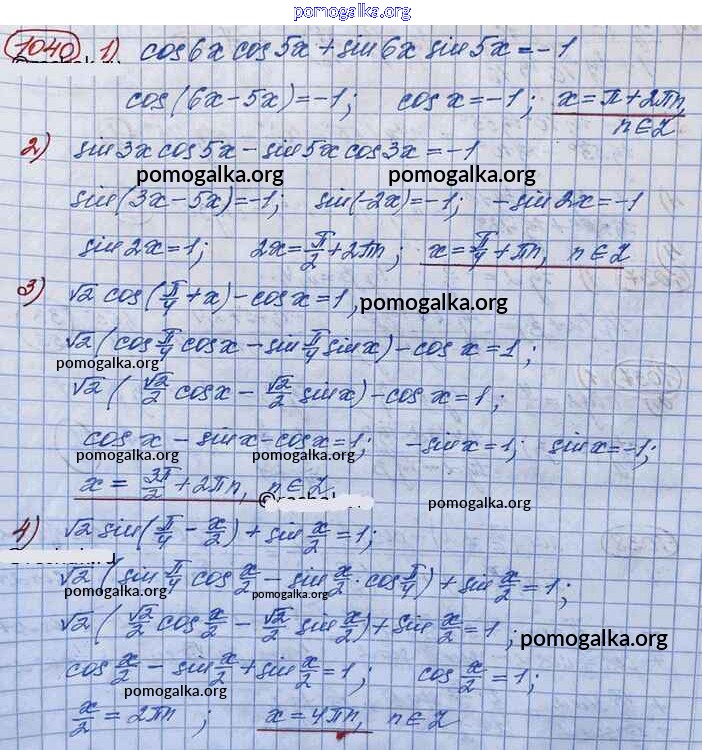 pomogalka.org
1040 1) cos6x cos5x + sin6x sin5x = -1
cos(6x-5x) = -1; cos x = -1; x = π + 2πn,
n∈Z
2) sin3x cos5x - sin5x cos3x = -1
pomogalka.org pomogalka.org
sin(3x-5x) = -1; sin(-2x) = -1; -sin2x = -1
sin2x = 1; 2x = π/2 + 2πn; x = π/4 + πn, n∈Z
3) √2 cos(π/4 + x) - cos x = 1, pomogalka.org
√2(cos π/4 cos x - sin π/4 sin x) - cos x = 1;
pomogalka.org
√2(√2/2 cos x - √2/2 sin x) - cos x = 1;
cos x - sin x - cos x = 1; -sin x = 1; sin x = -1;
x = 3π/2 + 2πn, n∈Z
pomogalka.org
4) √2 sin(π/4 - x/2) + sin x/2 = 1;
√2(sin π/4 cos x/2 - sin x/2 · cos π/4) + sin x/2 = 1;
pomogalka.org pomogalka.org
√2(√2/2 cos x/2 - √2/2 sin x/2) + sin x/2 = 1; pomogalka.org
cos x/2 - sin x/2 + sin x/2 = 1; cos x/2 = 1;
pomogalka.org
x/2 = 2πn; x = 4πn, n∈Z